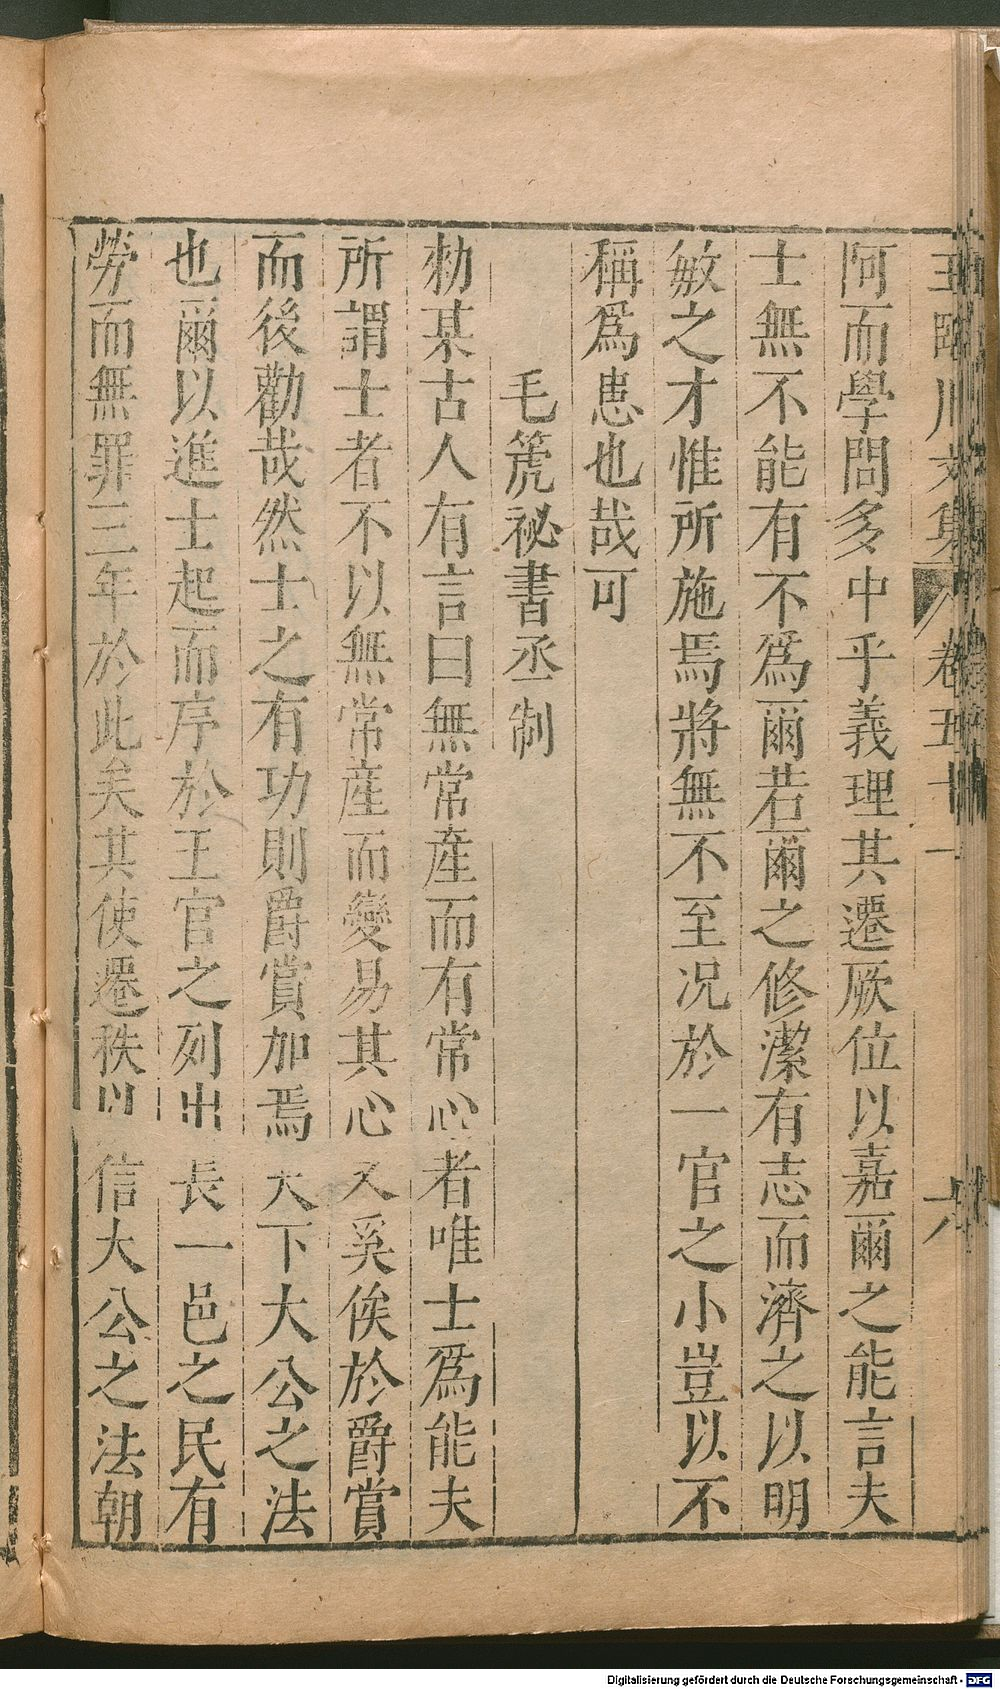 王臨川文集 卷五十一 六
阿而學問多中乎義理其遷厥位以嘉爾之能言夫
士無不能有不爲爾若爾之修潔有志而濟之以明
敏之才惟所施焉將無不至况於一官之小豈以不
稱爲患也哉可
毛篪祕書丞制
勑某古人有言曰無常產而有常心者唯士爲能夫
所謂士者不以無常產而變易其心又奚俟於爵賞
而後勸哉然士之有功則爵賞加焉天下大公之法
也爾以進士起而序於王官之列出長一邑之民有
勞而無罪三年於此矣其使遷秩以信大公之法朝
Digitalisierung gefördert durch die Deutsche Forschungsgemeinschaft - DFG